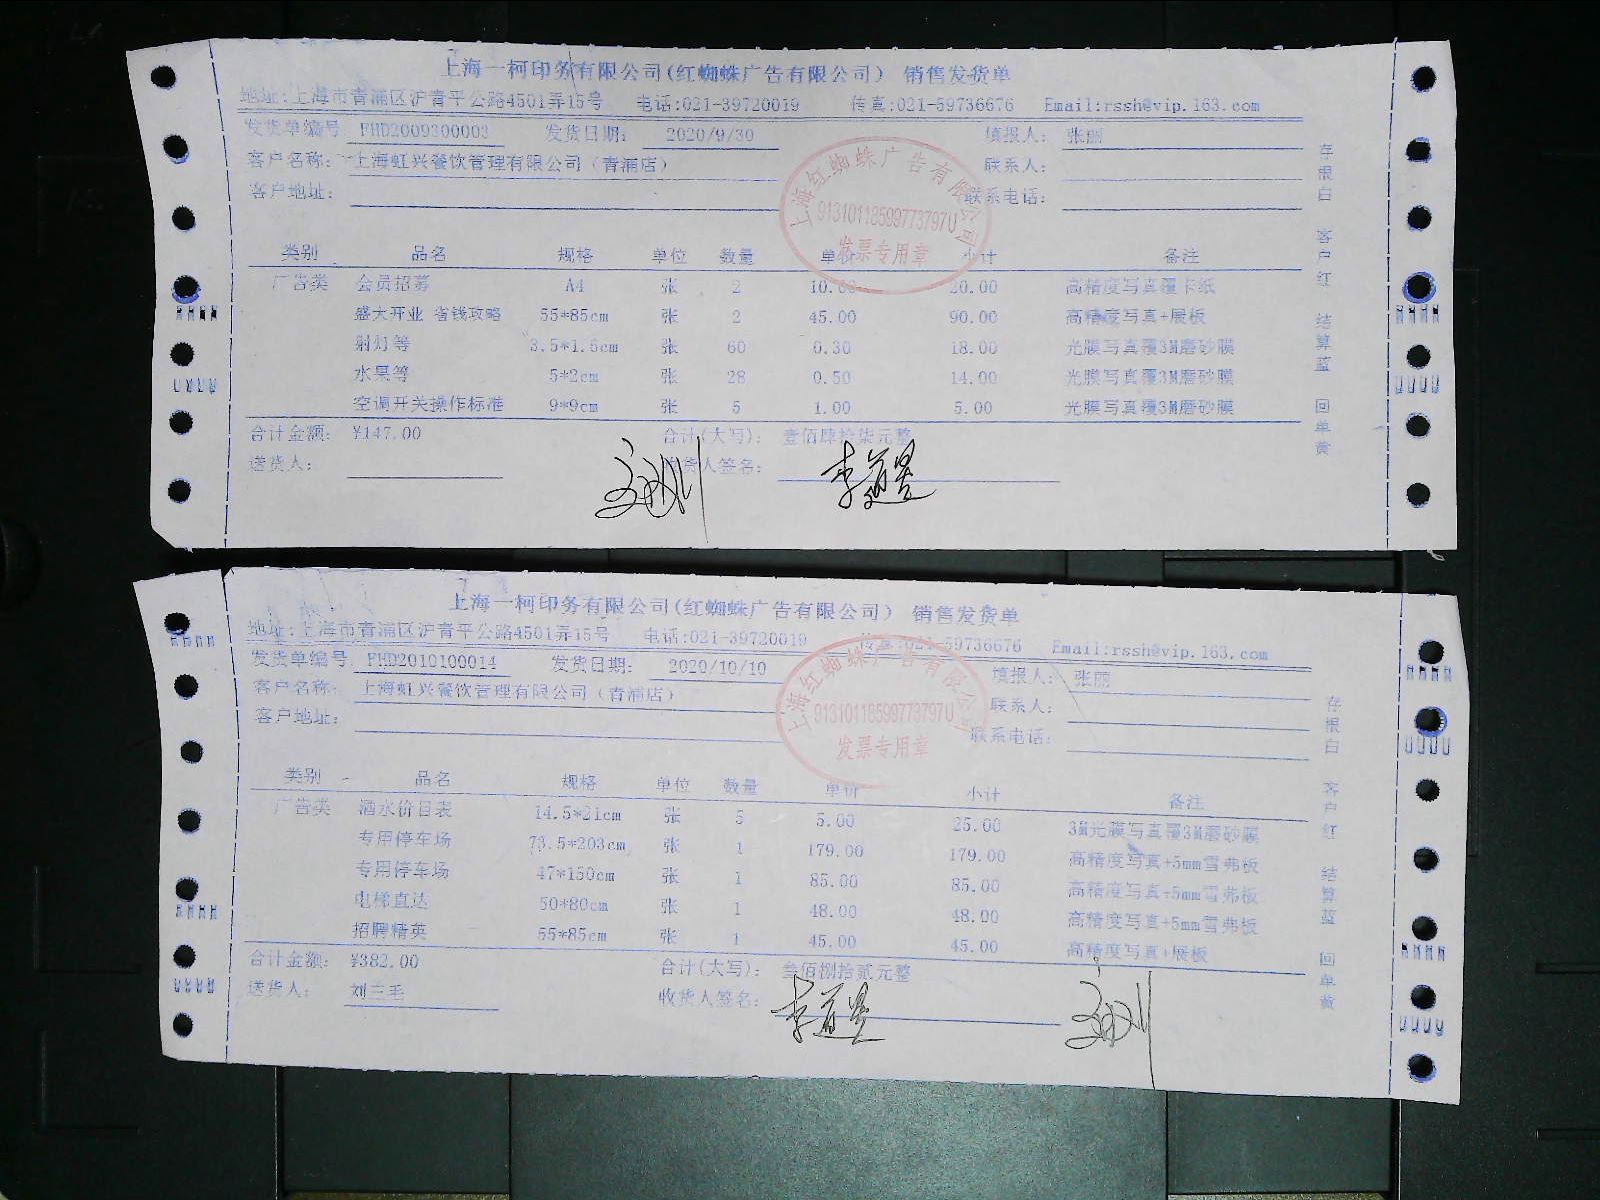 上海一柯印务有限公司(红蜘蛛广告有限公司) 销售发货单
地址:上海市青浦区沪青平公路4501弄15号 电话:021-39720019 传真:021-59736676 Email:rssh@vip.163.com
发货单编号 FHD2009300003 发货日期: 2020/9/30 填报人: 张丽
客户名称: 上海虹兴餐饮管理有限公司(青浦店) 联系人:
客户地址: 联系电话:
上海红蜘蛛广告有限公司
91310118599773797U
发票专用章
类别 品名 规格 单位 数量 单价 小计 备注
广告类 会员招募 A4 张 2 10.00 20.00 高精度写真覆卡纸
盛大开业 省钱攻略 55*85cm 张 2 45.00 90.00 高精度写真+展板
射灯等 3.5*1.6cm 张 60 0.30 18.00 光膜写真覆3M磨砂膜
水果等 5*2cm 张 28 0.50 14.00 光膜写真覆3M磨砂膜
空调开关操作标准 9*9cm 张 5 1.00 5.00 光膜写真覆3M磨砂膜
合计金额: ¥147.00 合计(大写): 壹佰肆拾柒元整
送货人: 收货人签名:
存根白 客户红 结算蓝 回单黄
上海一柯印务有限公司(红蜘蛛广告有限公司) 销售发货单
地址:上海市青浦区沪青平公路4501弄15号 电话:021-39720019 传真:021-59736676 Email:rssh@vip.163.com
发货单编号 FHD2010100014 发货日期: 2020/10/10 填报人: 张丽
客户名称: 上海虹兴餐饮管理有限公司(青浦店) 联系人:
客户地址: 联系电话:
上海红蜘蛛广告有限公司
91310118599773797U
发票专用章
类别 品名 规格 单位 数量 单价 小计 备注
广告类 酒水价目表 14.5*21cm 张 5 5.00 25.00 3M光膜写真覆3M磨砂膜
专用停车场 73.5*203cm 张 1 179.00 179.00 高精度写真+5mm雪弗板
专用停车场 47*150cm 张 1 85.00 85.00 高精度写真+5mm雪弗板
电梯直达 50*80cm 张 1 48.00 48.00 高精度写真+5mm雪弗板
招聘精英 55*85cm 张 1 45.00 45.00 高精度写真+展板
合计金额: ¥382.00 合计(大写): 叁佰捌拾贰元整
送货人: 刘三毛 收货人签名:
存根白 客户红 结算蓝 回单黄